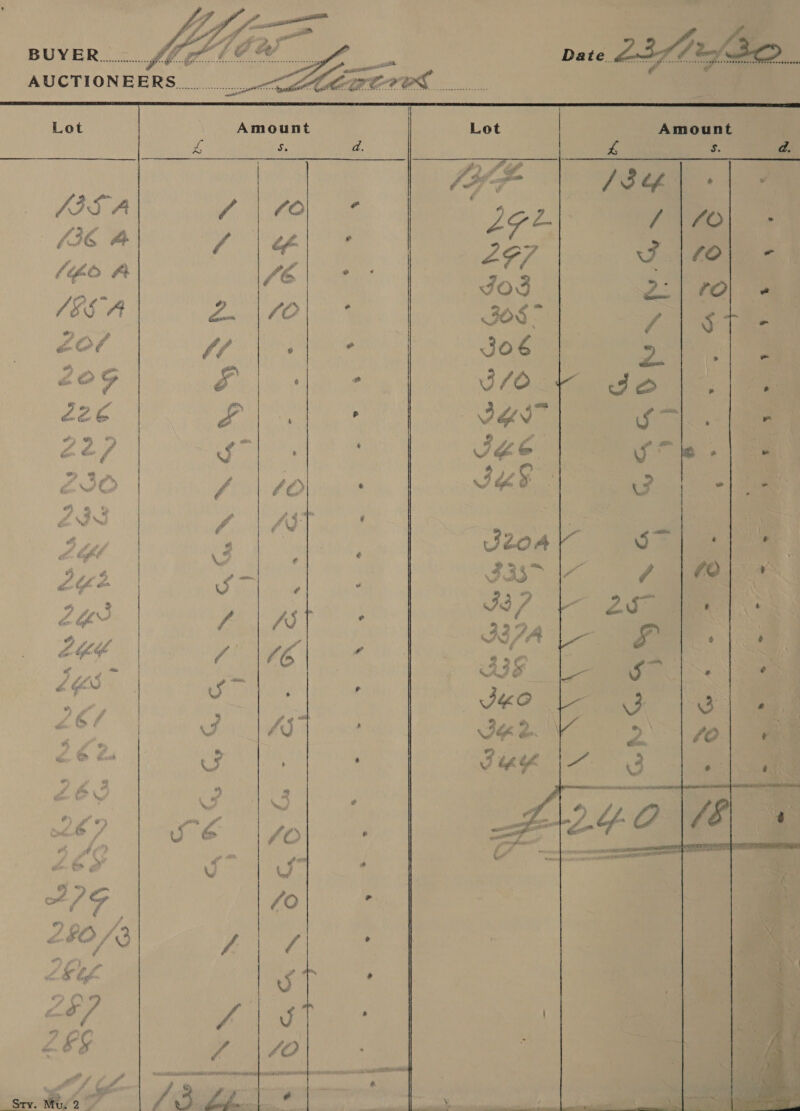 BUYER
Date 23/12/30
AUCTIONEERS
Lot Amount Lot Amount
£ s. d. £ s. d.
B/F 134 . .
135A 1 10 -
136 A 1 4 -
140 A 16 -
185A 2 10 -
201 11 . -
209 8 . -
226 8 . -
227 5 . -
230 1 10 -
233 1 15 -
241 3 . -
242 5 . -
243 1 15 -
244 1 16 -
245 5 . -
261 3 15 -
262 3 . -
263 3 3 -
267 56 10 -
268 5 5 -
279 10 -
280/3 1 1 -
284 5 -
287 1 5 -
288 1 10 -
134 . -
Sty. Mu. 2
292 1 10 -
297 3 10 -
303 2 10 -
305 1 5 -
306 2 . -
310 30 . -
345 5 . -
346 5 . -
348 3 - -
320A 5 . -
335 1 10 -
337 25 . .
337A 8 . .
338 5 . .
340 3 3 -
342 2 10 -
344 3 . .
£240 18 .